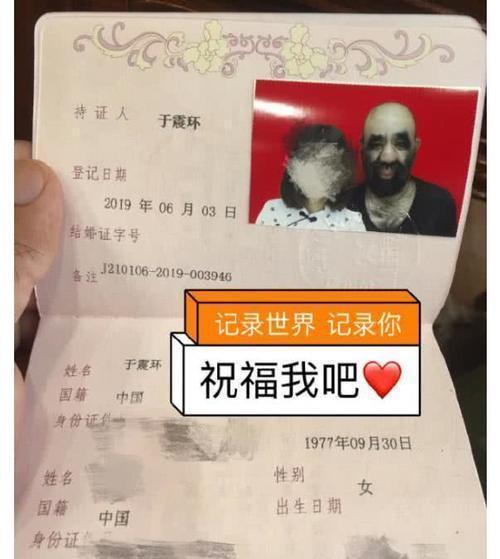 持证人 于震环
登记日期
2019 年 06 月 03 日
结婚证字号
J210106-2019-003946
备注
记录世界 记录你
祝福我吧❤
姓名 于震环
国籍 中国
身份证件
1977年09月30日
姓名 性别 女
国籍 中国 出生日期
身份证件